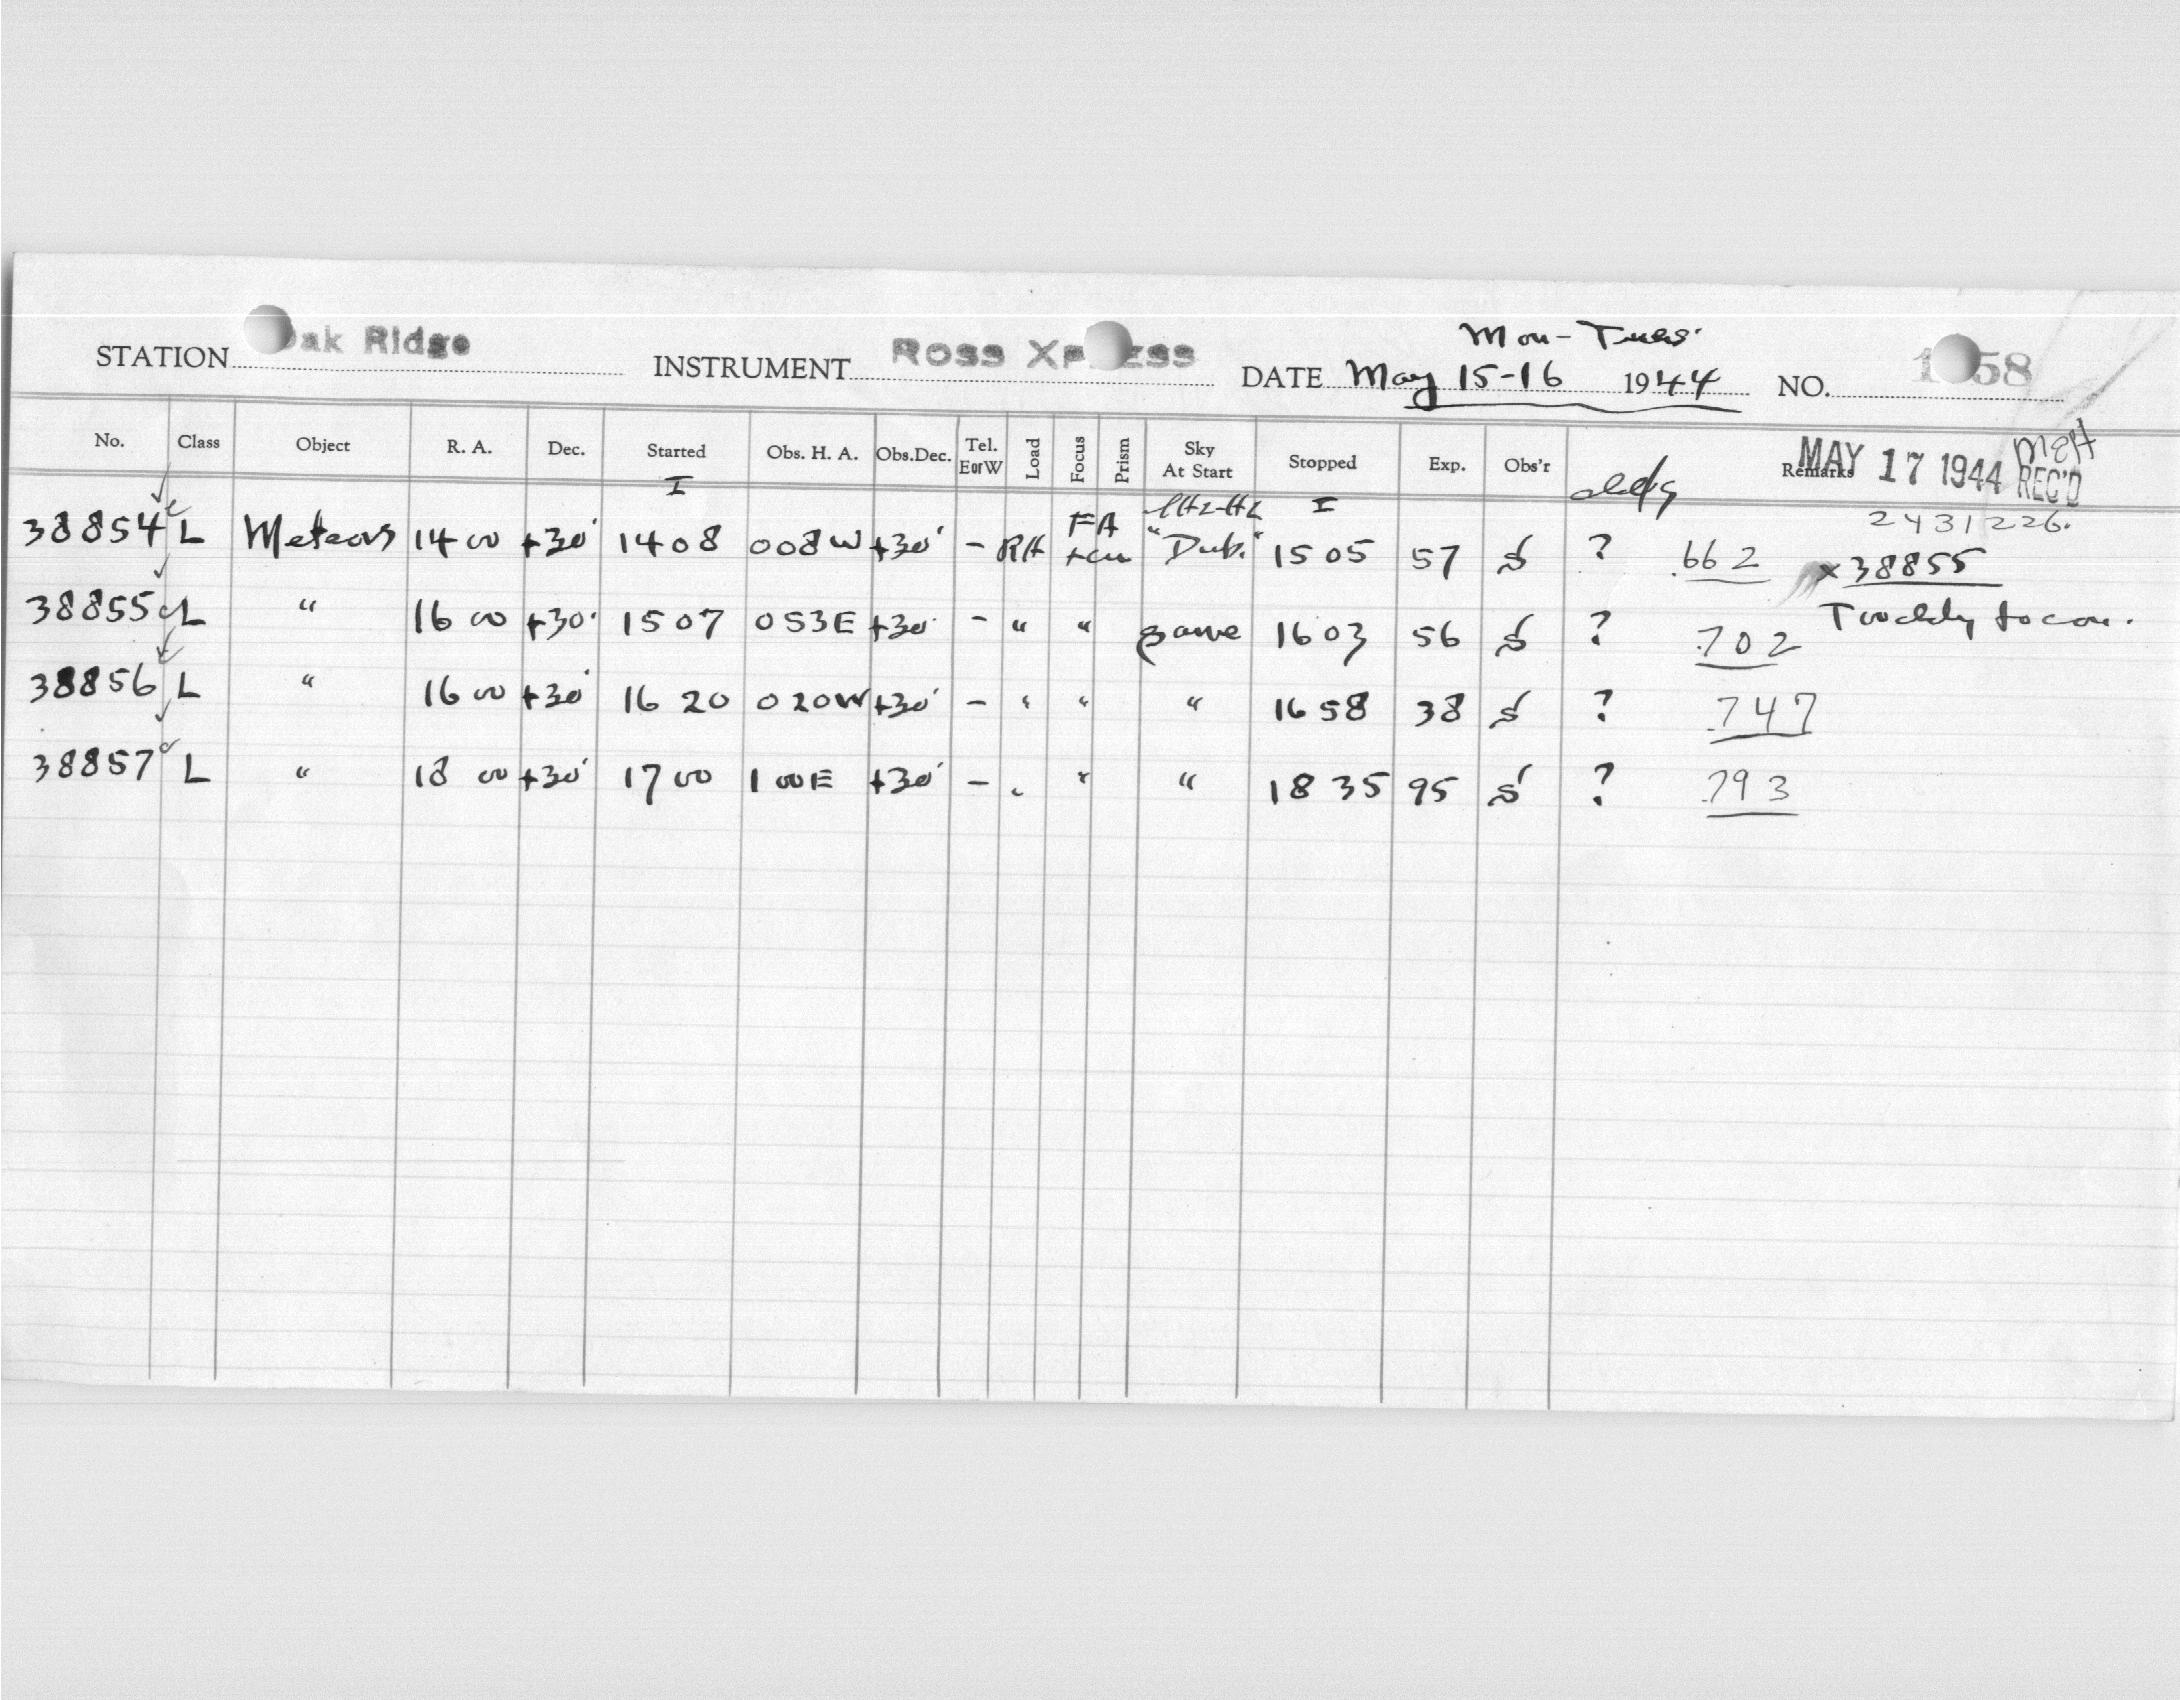 Mon-Tues.
STATION Oak Ridge INSTRUMENT Ross Xpress DATE May 15-16 1944 NO. 1 58
No. Class Object R. A. Dec. Started Obs. H. A. Obs.Dec. Tel. E or W Load Focus Prism Sky At Start Stopped Exp. Obs'r Remarks
MAY 17 1944 REC'D
MEH
I I
2431226.
38854 L Meteors 14 00 +30° 14 08 0 08 W +30° - RH FA "Dub." 15 05 57 S ? .662 x 38855
38855 L " 16 00 +30° 15 07 0 53 E +30° - " " same 16 03 56 S ? .702
38856 L " 16 00 +30° 16 20 0 20 W +30° - " " " 16 58 38 S ? .747
38857 L " 18 00 +30° 17 00 1 00 E +30° - " " " 18 35 95 S ? .793